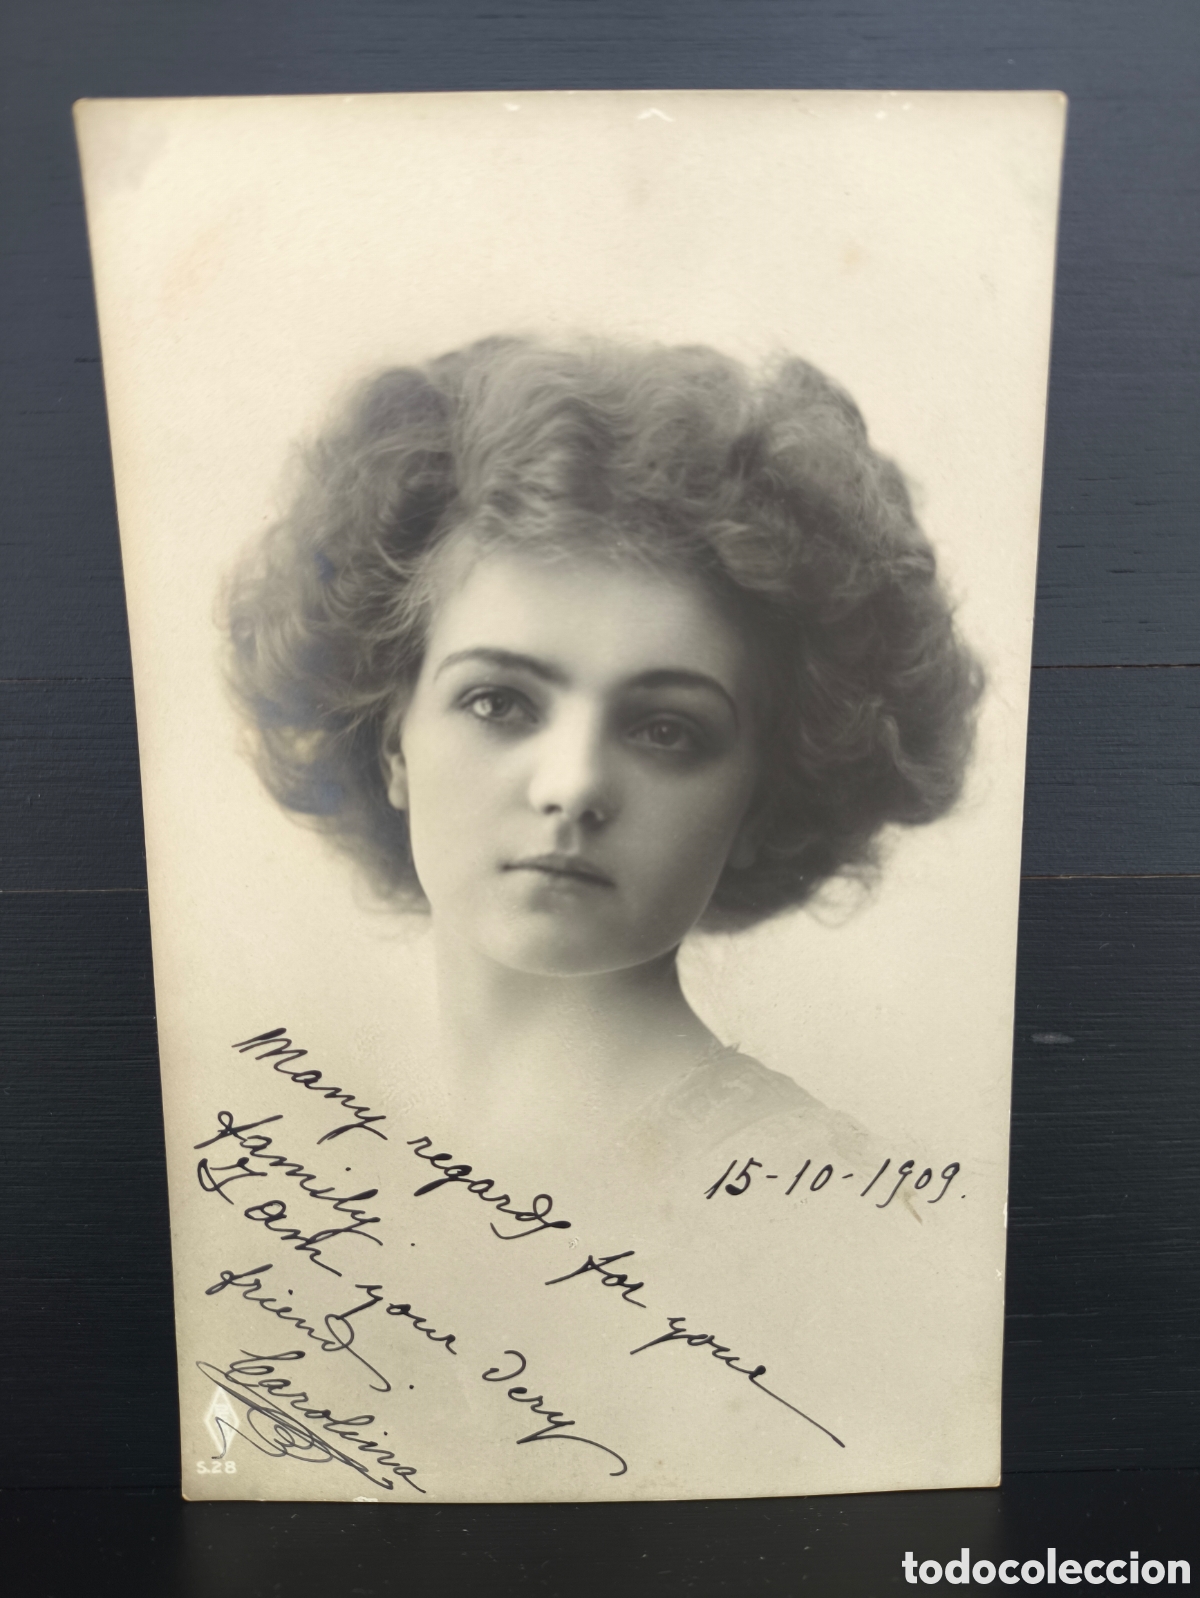 Many regards for your
family.
I am your very
friend.
Carolina
15-10-1909.
S.28
todocoleccion